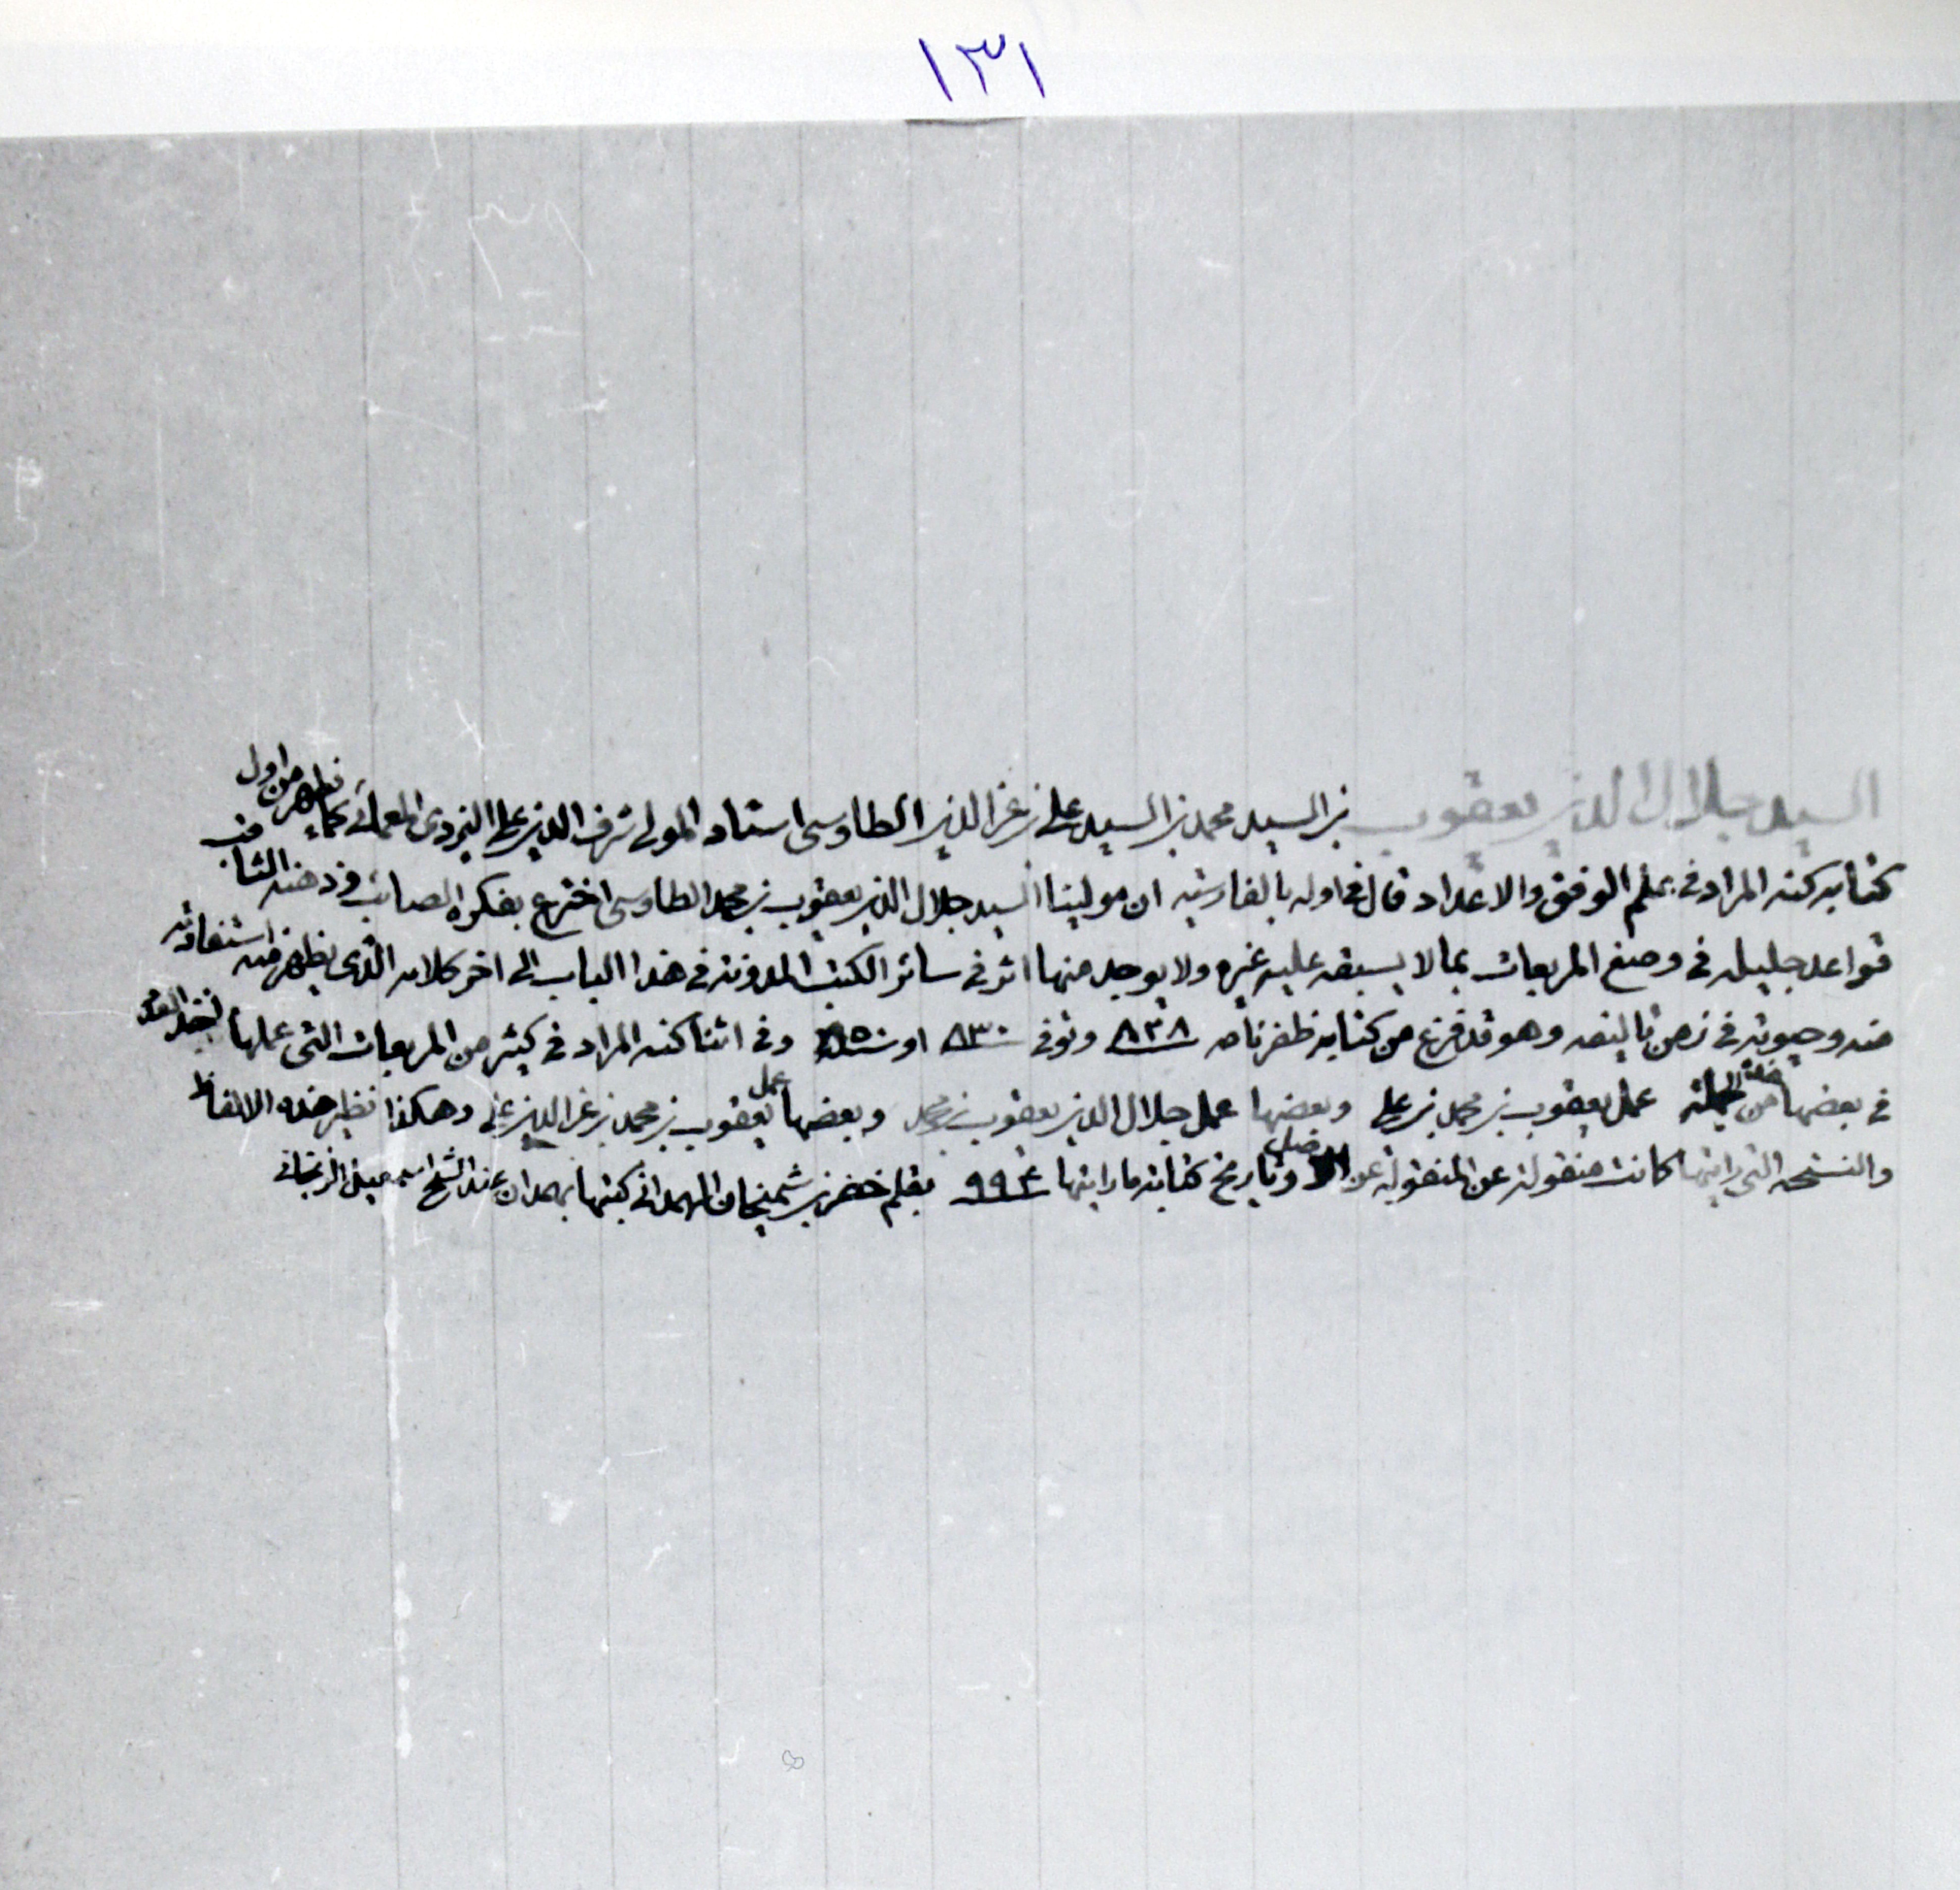 ١٣١
السيد جلال الدين يعقوب بن السيد محمد بن السيد علي بن عز الدين الطاوسي استاد المولى شرف الدين علي اليزدي المعمائي كما يظهر من اول
كتابه كنه المراد في علم الوفق والاعداد قال في اوله بالفارسيه ان مولينا السيد جلال الدين يعقوب بن محمد الطاوسي اخترع بفكره الصائب وذهنه الثاقب
قواعد جليله في وضع المربعات بما لا يسبقه عليه غيره ولا يوجد منها اثر في سائر الكتب المدونه في هذا الباب الى اخر كلامه الذي يظهر منه استفادته
منه وحيوته في زمن تاليفه وهو قد فرغ من كتابه ظفرنامه ٨٢٨ وتوفي ٨٣٠ او ٨٥٠ وفي اثنا كنه المراد في كثير من المربعات التي عملها
في بعضها من عمل يعقوب بن محمد بن علي وبعضها عمل جلال الدين يعقوب بن محمد وبعضها عمل يعقوب بن محمد بن عز الدين علي وهكذا نظير هذه الالفاظ
والنسخه التي رايتها كانت منقولة عن المنقولة عن الاصل وتاريخ كتابة ما رايتها ٩٩٤ بقلم خضر بن الهمداني كتبها بهمدان عند الشيخ اسمعيل الزنجاني